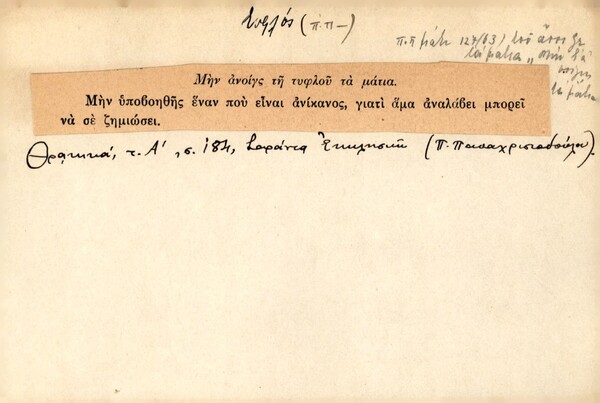 τυφλός (π.π—)
π.π μάτι 127/63) τοῦ ἄνοιξε
τὰ μάτια
Μὴν ἀνοίγς τῆ τυφλοῦ τὰ μάτια.
Μὴν ὑποβοηθῆς ἕναν ποὺ εἶναι ἀνίκανος, γιατὶ ἅμα ἀναλάβει μπορεῖ
νὰ σὲ ζημιώσει.
Θρακικά, τ. Α΄, σ. 184, Σαράντα Ἐκκλησιῶν (Π. Παπαχριστοδούλου).